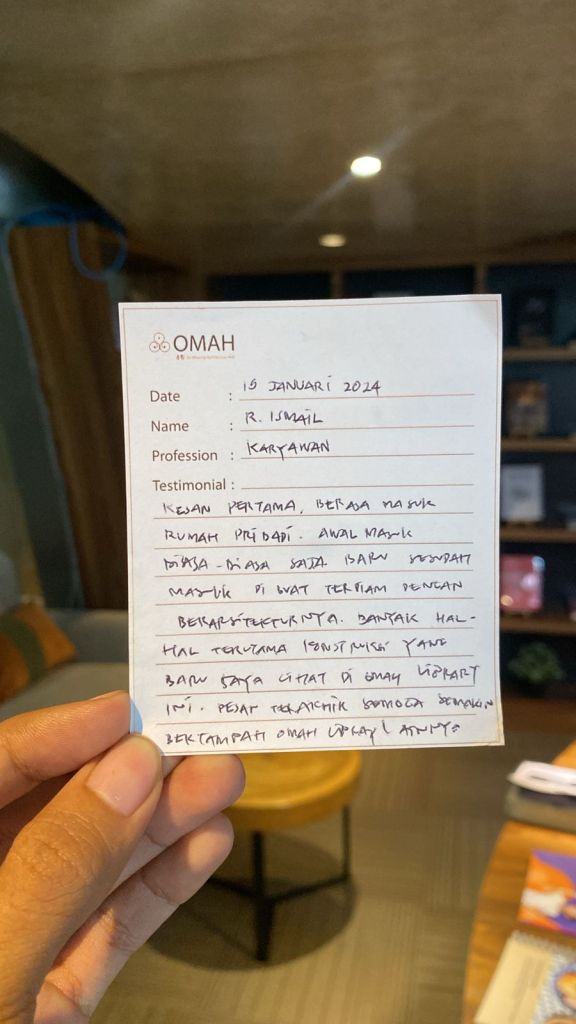 OMAH
Date : 15 JANUARI 2024
Name : R. ISMAIL
Profession : KARYAWAN
Testimonial :
KESAN PERTAMA, BERASA MASUK
RUMAH PRIBADI. AWAL MASUK
BIASA-BIASA SAJA BARU SESUDAH
MASUK DI BUAT TERDIAM DENGAN
BERARSITEKTURNYA. BANYAK HAL-
HAL TERUTAMA KONSTRUKSI YANG
BARU SAYA LIHAT DI OMAH LIBRARY
INI. PESAN TERAKHIR SEMOGA SEMAKIN
BERTAMBAH OMAH LIBRAY LAINNYA